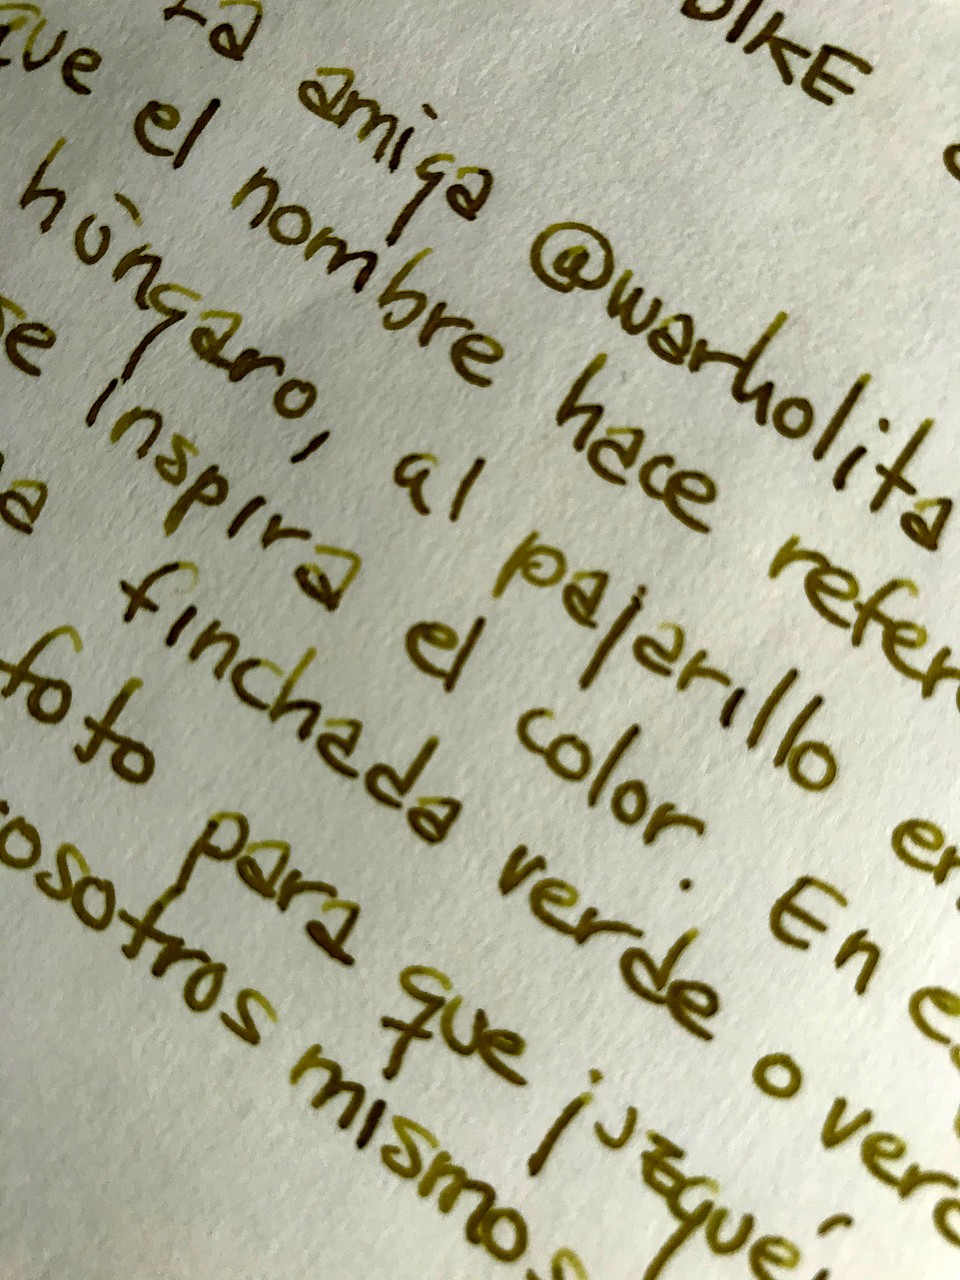 amiga @warholita
que el nombre hace refer
húngaro, al pajarillo en
se inspira el color. En e
a finchada verde o verd
foto para que juzgué
osotros mismos